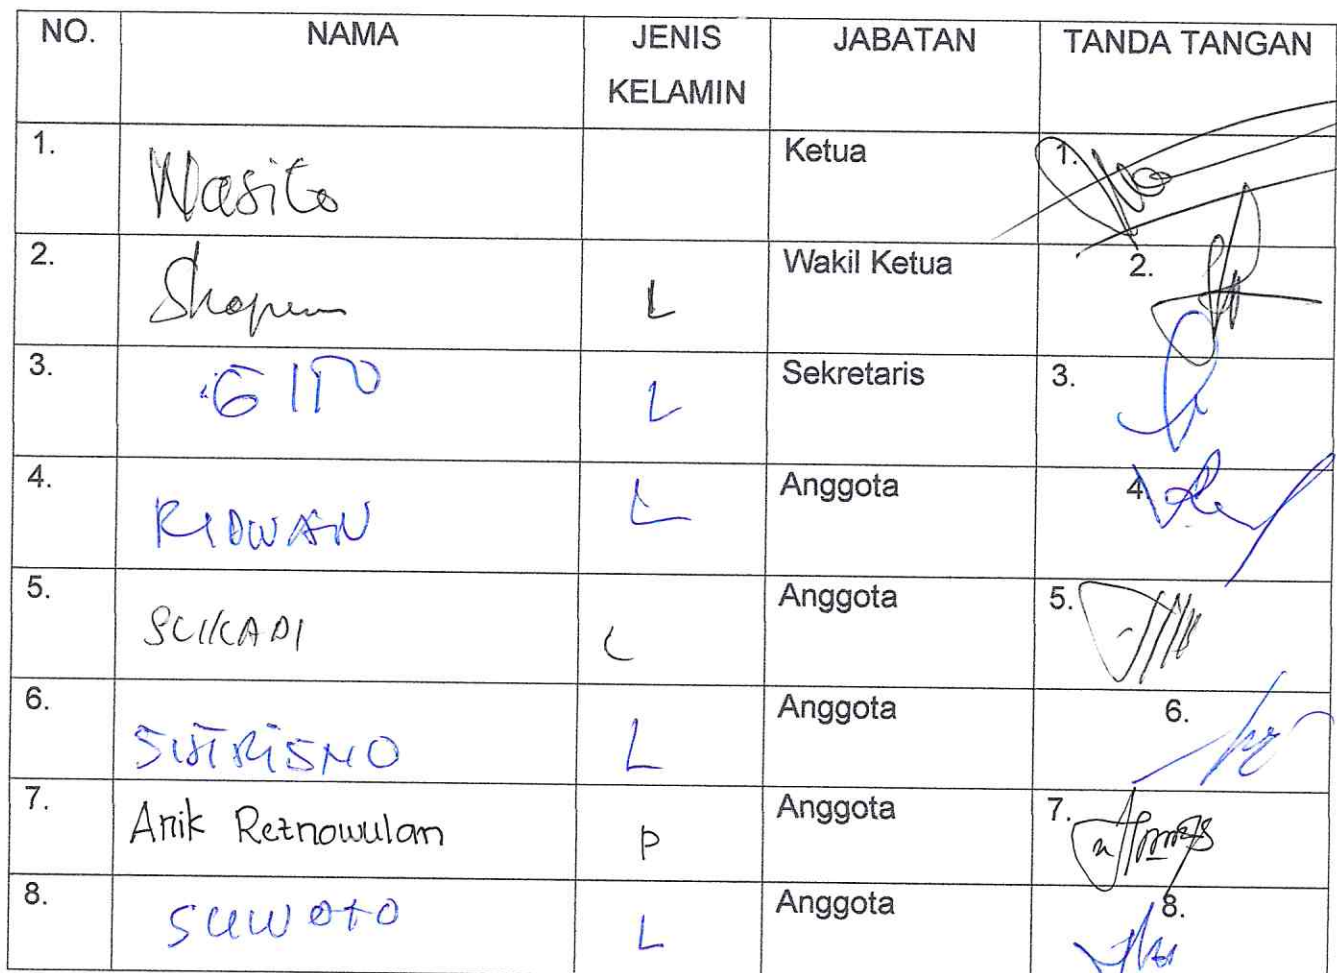 NO. NAMA JENIS KELAMIN JABATAN TANDA TANGAN
1. Wasito Ketua 1.
2. L Wakil Ketua 2.
3. GITO L Sekretaris 3.
4. RIDWAN L Anggota 4.
5. SUKADI L Anggota 5.
6. SUTRISNO L Anggota 6.
7. Anik Retnowulan P Anggota 7.
8. SUWOTO L Anggota 8.